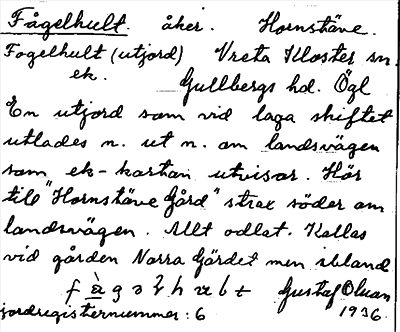 Fågelhult. åker. Hornstäve.
Fogelhult (utjord) Vreta Kloster sn.
ek. Gullbergs hd. Ögl
En utjord som vid laga skiftet
utlades n. ut n. om landsvägen
som ek-kartan utvisar. Hör
till "Hornstäve Gård" strax söder om
landsvägen. Allt odlat. Kallas
vid gården Norra Gärdet men ibland
Gustaf Olsson
jordregisternummer: 6 1936.